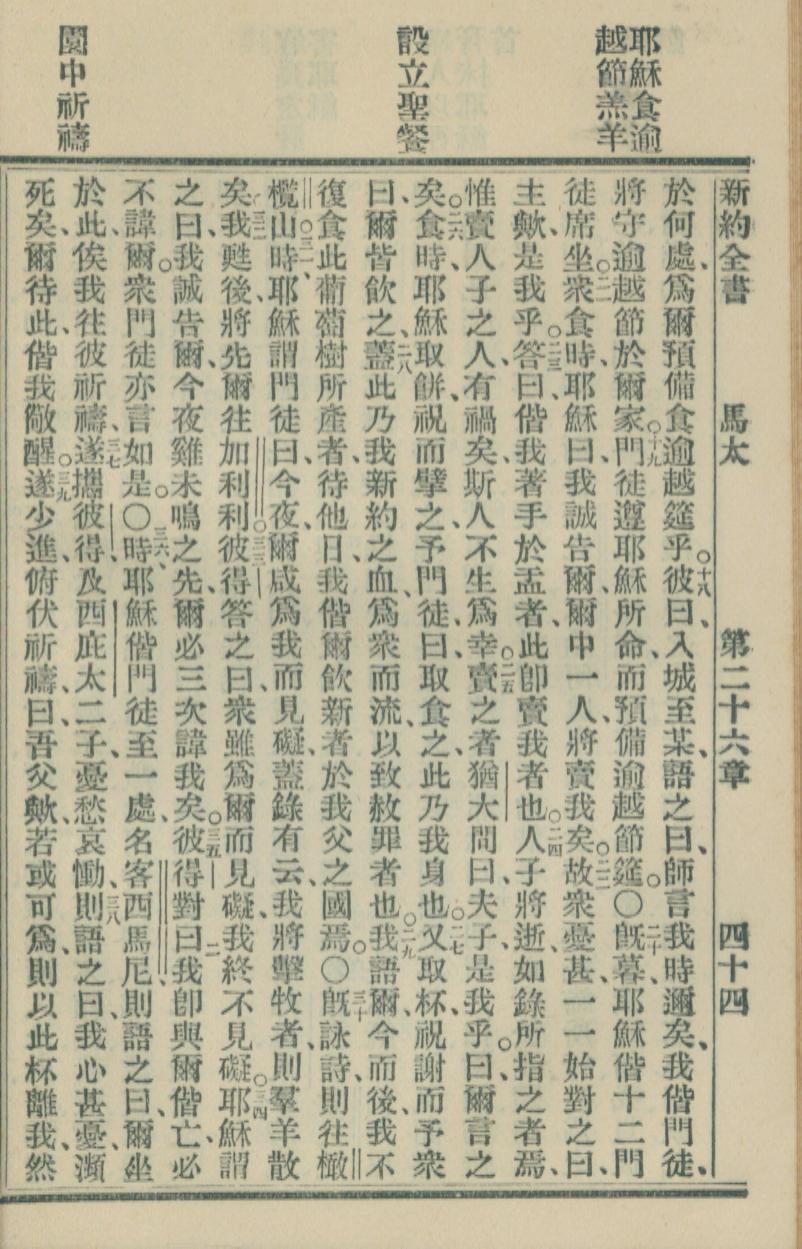 耶穌食逾
越節羔羊
設立聖餐
園中祈禱
新約全書 馬太 第二十六章 四十四
於何處、爲爾預備食逾越筵乎、○十八彼曰、入城至某、語之曰、師言我時邇矣、我偕門徒、
將守逾越節於爾家、○十九門徒遵耶穌所命、而預備逾越節筵、○○二十旣暮、耶穌偕十二門
徒席坐、○二一衆食時、耶穌曰、我誠告爾、爾中一人、將賣我矣、○二二故衆憂甚、一一始對之曰、
主歟、是我乎、○二三答曰、偕我著手於盂者、此卽賣我者也、○二四人子將逝、如錄所指之者焉、
惟賣人子之人、有禍矣、斯人不生爲幸、○二五賣之者猶大問曰、夫子、是我乎、○曰、爾言之
矣、○二六食時、耶穌取餅、祝而擘之、予門徒曰、取食之、此乃我身也、○二七又取杯、祝謝而予衆
曰、爾皆飮之、二八蓋此乃我新約之血、爲衆而流、以致赦罪者也、○二九我語爾、今而後、我不
復食此葡萄樹所產者、待他日、我偕爾飮新者於我父之國焉、○○三十旣詠詩、則往橄
欖山、○三一時、耶穌謂門徒曰、今夜、爾咸爲我而見礙、蓋錄有云、我將擊牧者、則羣羊散
矣、三二我甦後、將先爾往加利利、○三三彼得答之曰、衆雖爲爾而見礙、我終不見礙、○三四耶穌謂
之曰、我誠告爾、今夜雞未鳴之先、爾必三次諱我矣、○三五彼得對曰、我卽與爾偕亡、必
不諱爾、○衆門徒亦言如是、○○三六時、耶穌偕門徒至一處、名客西馬尼、則語之曰、爾坐
於此、俟我往彼祈禱、三七遂攜彼得、及西庇太二子、憂愁哀慟、三八則語之曰、我心甚憂、瀕
死矣、爾待此、偕我儆醒、○三九遂少進、俯伏祈禱、曰、吾父歟、若或可爲、則以此杯離我、然